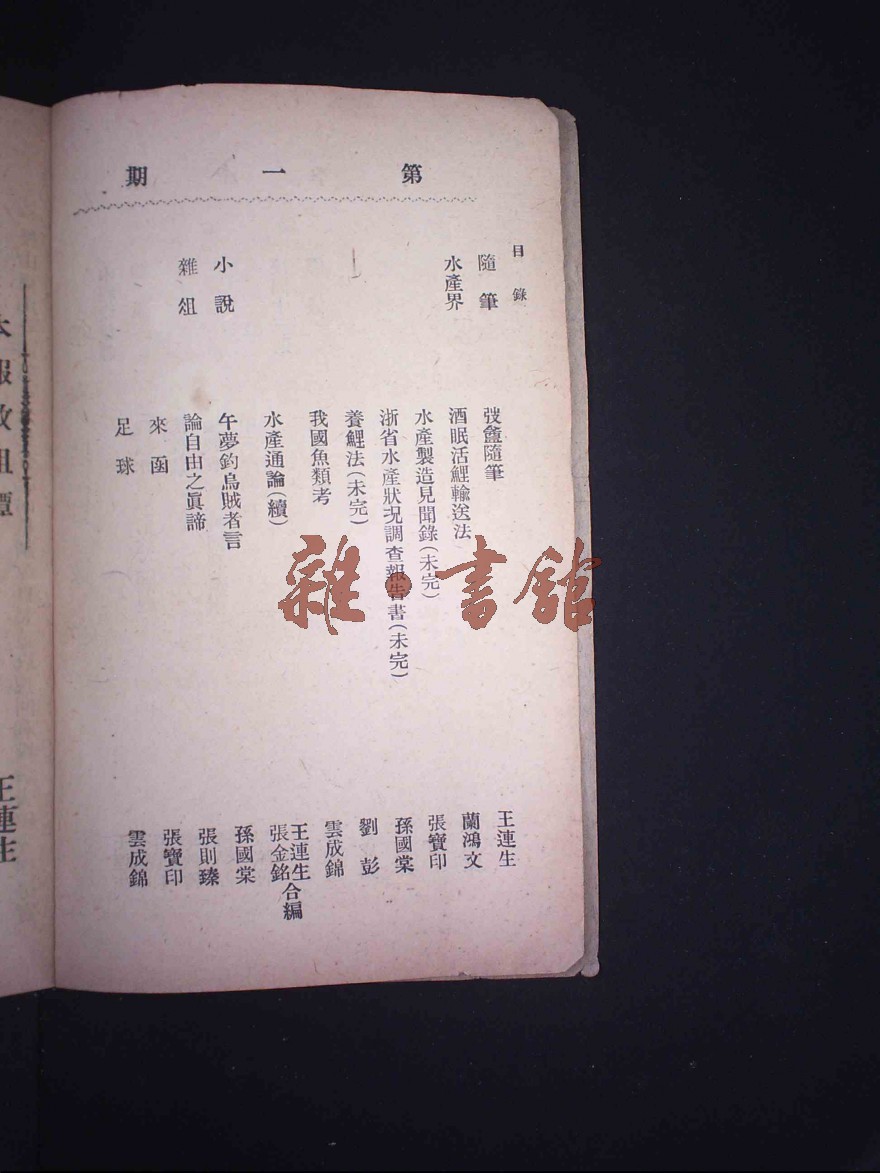 第一期
目錄
隨筆
弢盦隨筆 王連生
水產界
酒眠活鯉輸送法 蘭鴻文
水產製造見聞錄(未完) 張寶印
浙省水產狀況調查報告書(未完) 孫國棠
養鯉法(未完) 劉彭
我國魚類考 雲成錦
水產通論(續) 王連生 張金銘 合編
小說
午夢釣烏賊者言 孫國棠
雜俎
論自由之眞諦 張則臻
來函 張寶印
足球 雲成錦
王連生
雜·書館